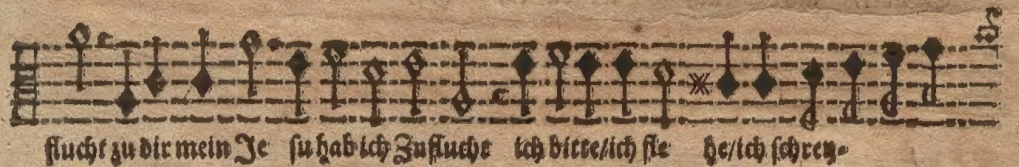 flucht zu dir mein Je su hab ich Zuflucht ich bitte/ich fle he/ich schrey-